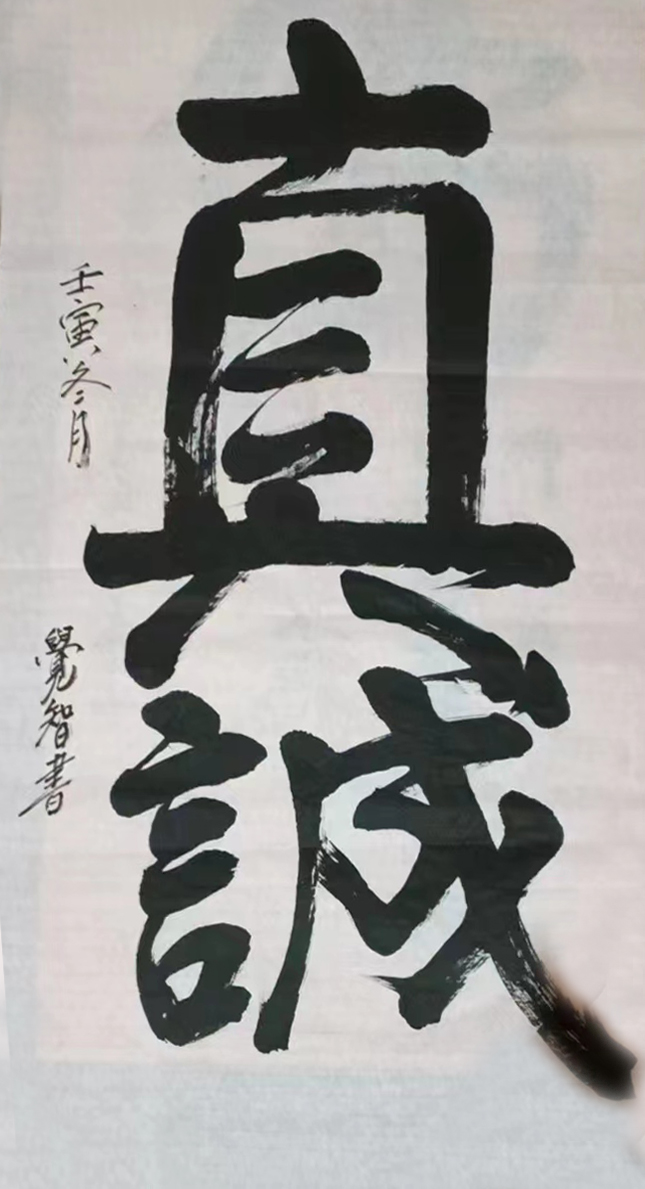 真誠
壬寅冬月
覺智書